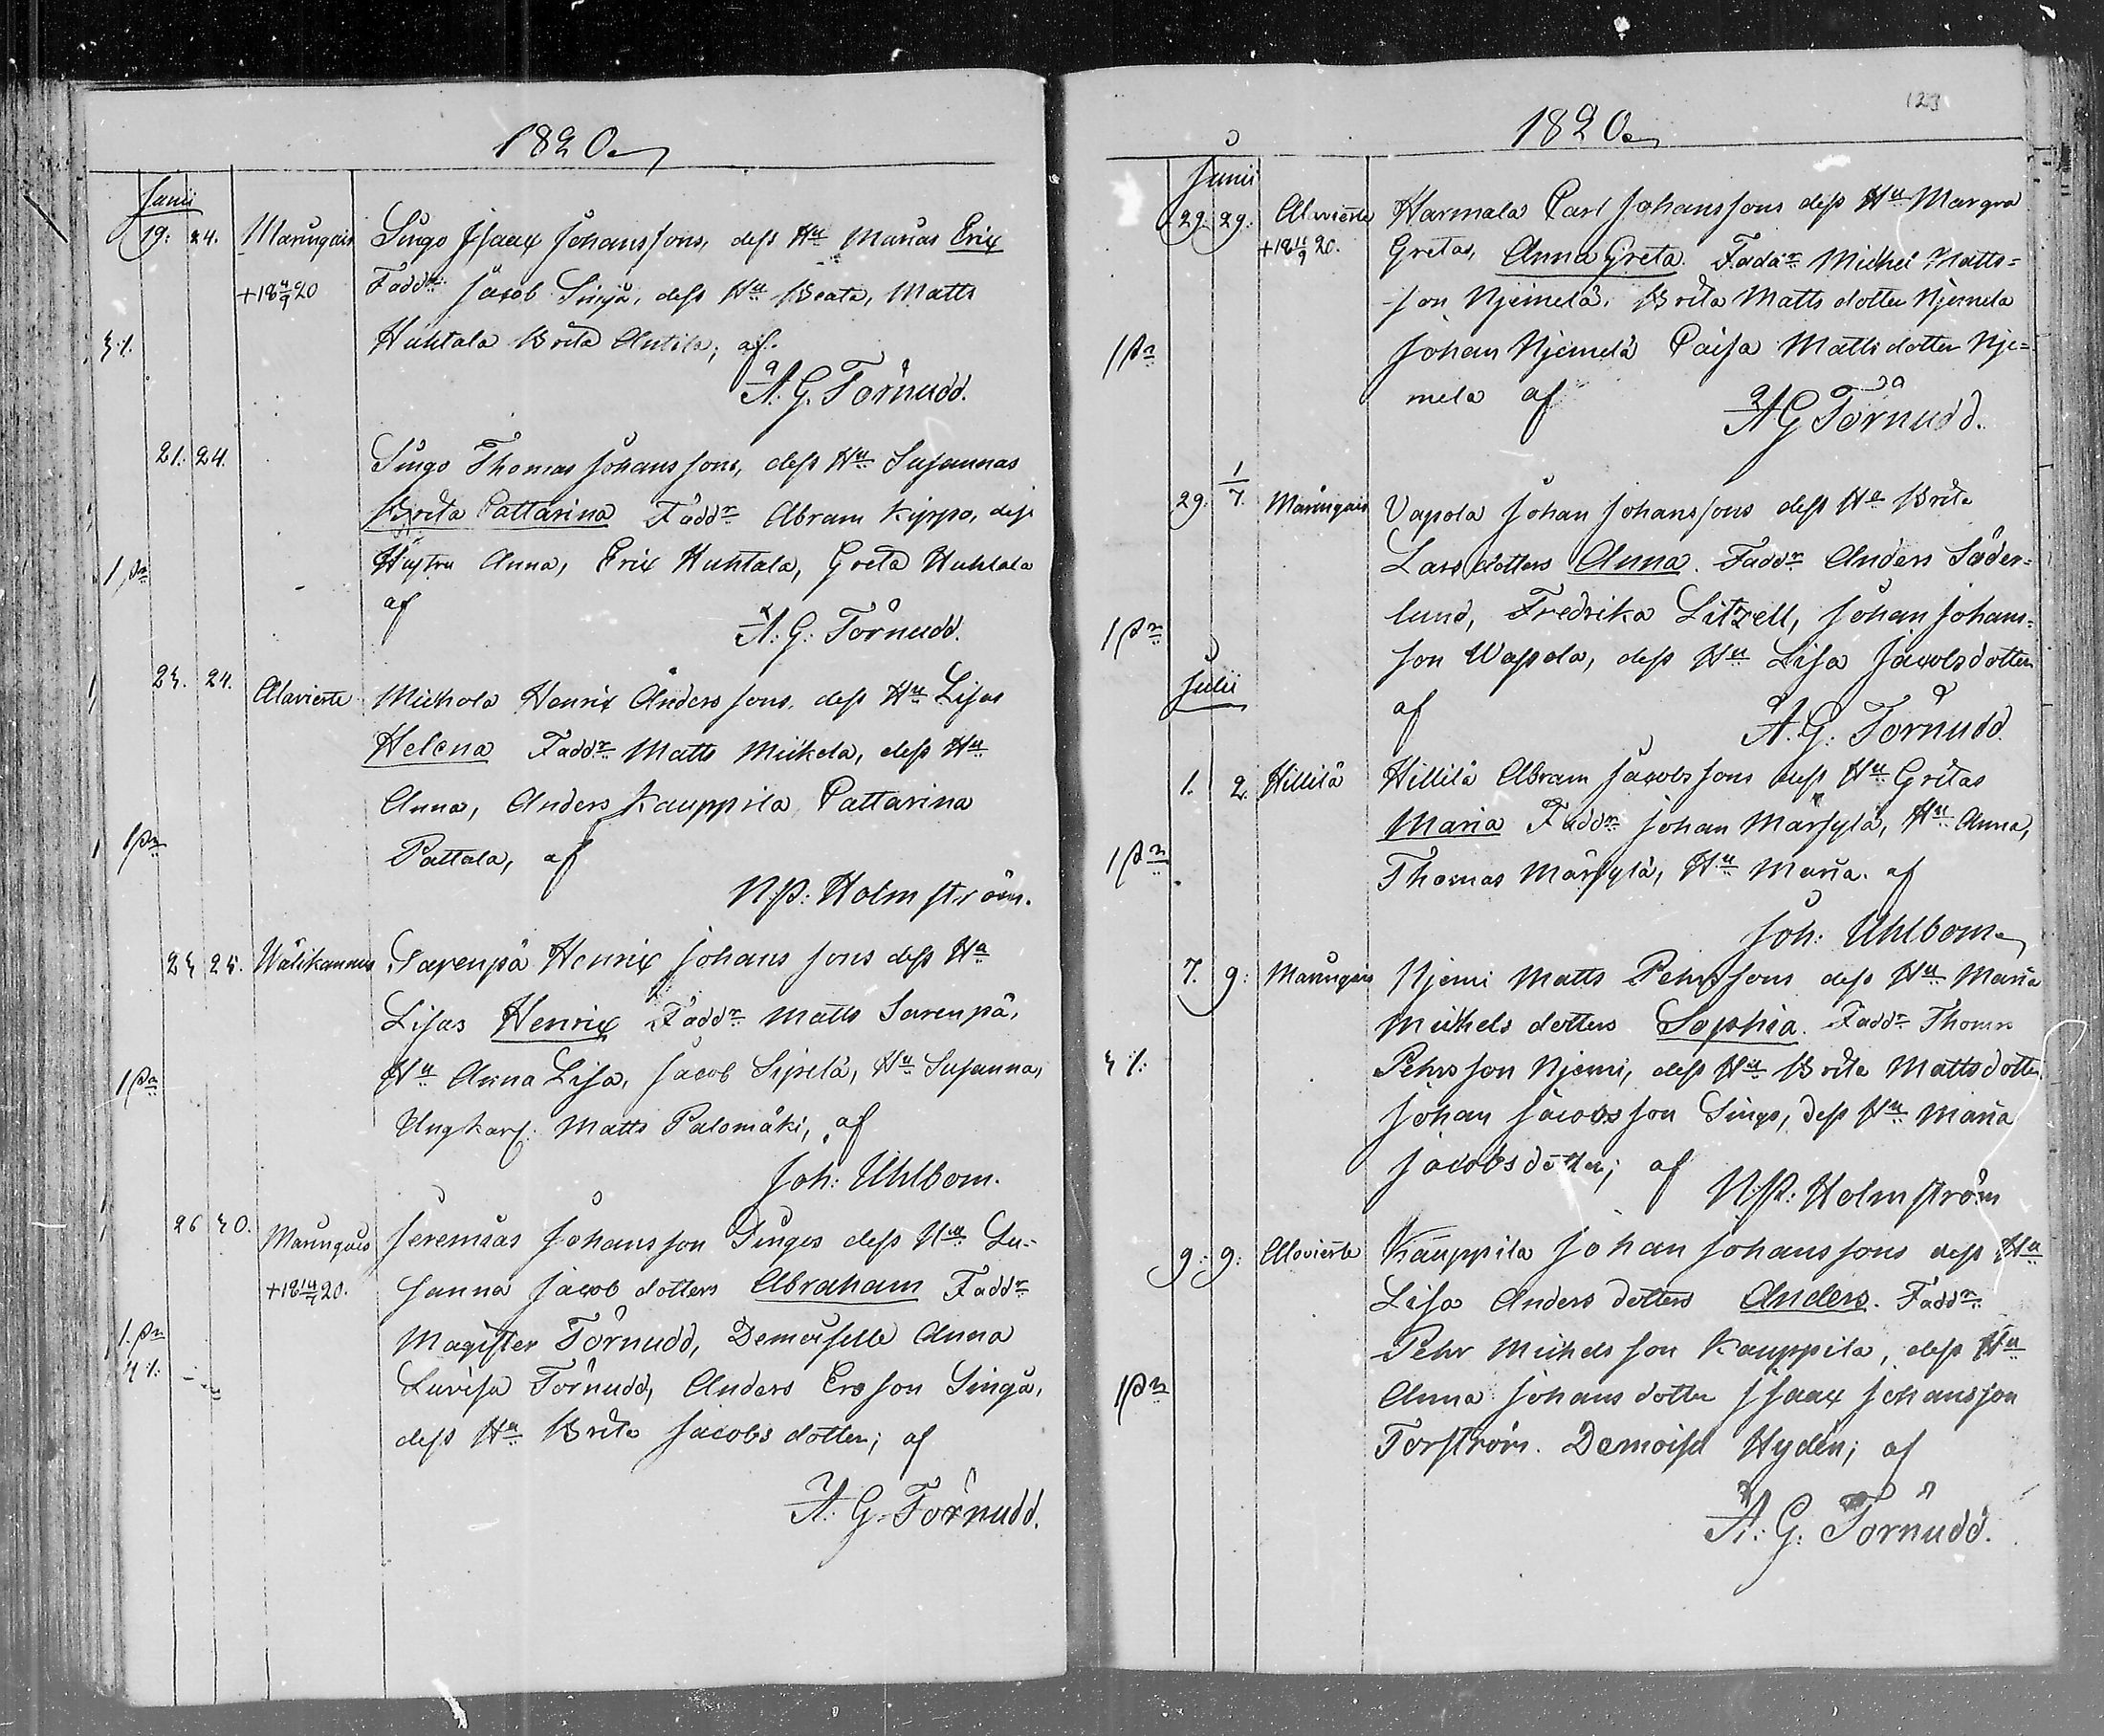 1820.
Junii
19. 24. Maringais Singo Isaax Johanssons, dess Hu Marias Erix
+18 4/9 20 Faddr Jacob Singå, dess Hu Beata, Matts
3/. Huhtala Brita Antila, af
A. G. Törnudd.
21. 24. Singo Thomas Johanssons, dess Hu Susannas
Brita Cattarina Faddr Abram Kippo, dess
1 pr Hustru Anna, Erix Huhtala, Greta Huhtala
af A: G: Törnudd.
23. 24. Alavierte Mickola Henrix Anderssons dess Hu Lisas
Helena Faddr Matts Mickela, dess Hu
Anna, Anders Kauppila Cattarina
1 pr Pattala, af
N.P: Holmström.
23 25. Wälikannus Sarenpä Henrix Johans sons dess Hu
Lisas Henrix Faddr Matts Sarenpä,
Hu Anna Lisa, Jacob Sipilä, Hu Susanna,
1 pr Ungkarl. Matts Palomäki, af
Joh: Uhlbom.
26 30. Maringais Jeremias Johansson Singos dess Hu Su-
+18 14/9 20. sanna Jacob dotters Abraham Faddr
1. pr Magister Törnudd, Demoiselle Anna
4/: Lovisa Törnudd, Anders Ersson Singå,
dess Hu Brita Jacobs dotter; af
A: G. Törnudd.
123
1820.
Junii
29. 29. Alavierte Harmala Carl Johanssons dess Hu Margra
+18 11/9 20. Gretas, Anna Greta. Faddr Michel Matts=
son Njemelä, Brita Matts dotter Njemela
1 pr Johan Njemelä Caisa Matts dotter Nje=
mela af A G Törnudd.
29. 1/7. Maringais Vapola Johan Johanssons dess Hu Brita
Lars dotters Anna. Faddr Anders Söder=
lund, Fredrika Litzell, Johan Johans=
1 pr son Wapola, dess Hu Lisa Jacobsdotter
Julii
af A. G: Törnudd.
1. 2. Hillilä Hillilä Abram Jacobs sons dess Hu Gretas
Maria Faddr Johan Märsylä, Hu Anna,
1 pr Thomas Märsylä, Hu Maria. af
Joh: Uhlbom
7. 9: Maringais Njemi Matts Pehrssons dess Hu Maria
Michels dotters Sophia. Faddr Thomas
3/: Pehrsson Njemi, dess Hu Brita Matts dotter.
Johan Jacobsson Singo, dess Hu Maria
Jacobs dotter; af N:P.: Holmström
9: 9: Alavierte Kauppila Johan Johanssons dess Hu
Lisa Anders dotters Anders. Faddr
Pehr Michels son Kauppila, dess Hu
1 pr Anna Johans dotter Isaax Johansson
Torström. Demoisel Hyden; af
A: G: Törnudd.